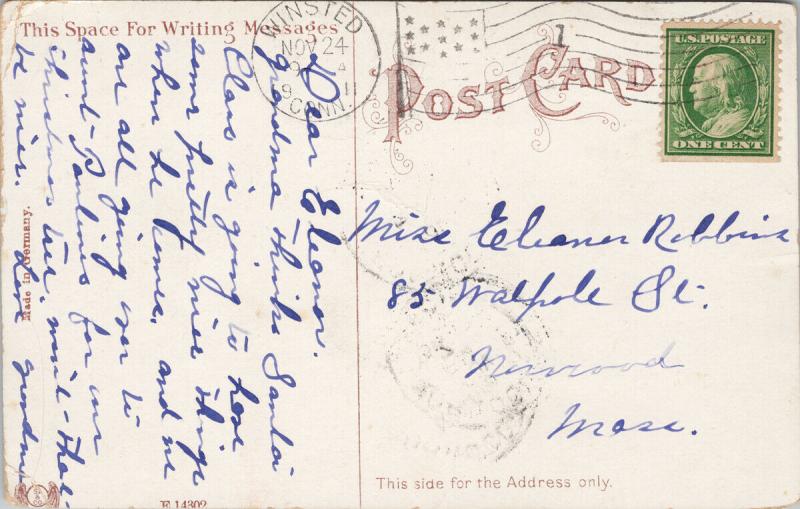 This Space For Writing Messages
Dear Eleanor.
Grandma thinks Santa
Claus is going to have
some pretty nice things
when he comes, and we
are all going over to
aunt Paulines for our
christmas tree. wont that
be nice. Love grandma
Made in Germany.
E 14302
WINSTED
NOV 24
CONN.
POST CARD
U.S. POSTAGE
ONE CENT
Miss Eleanor Robbins
85 Walpole St.
Norwood
Mass.
This side for the Address only.